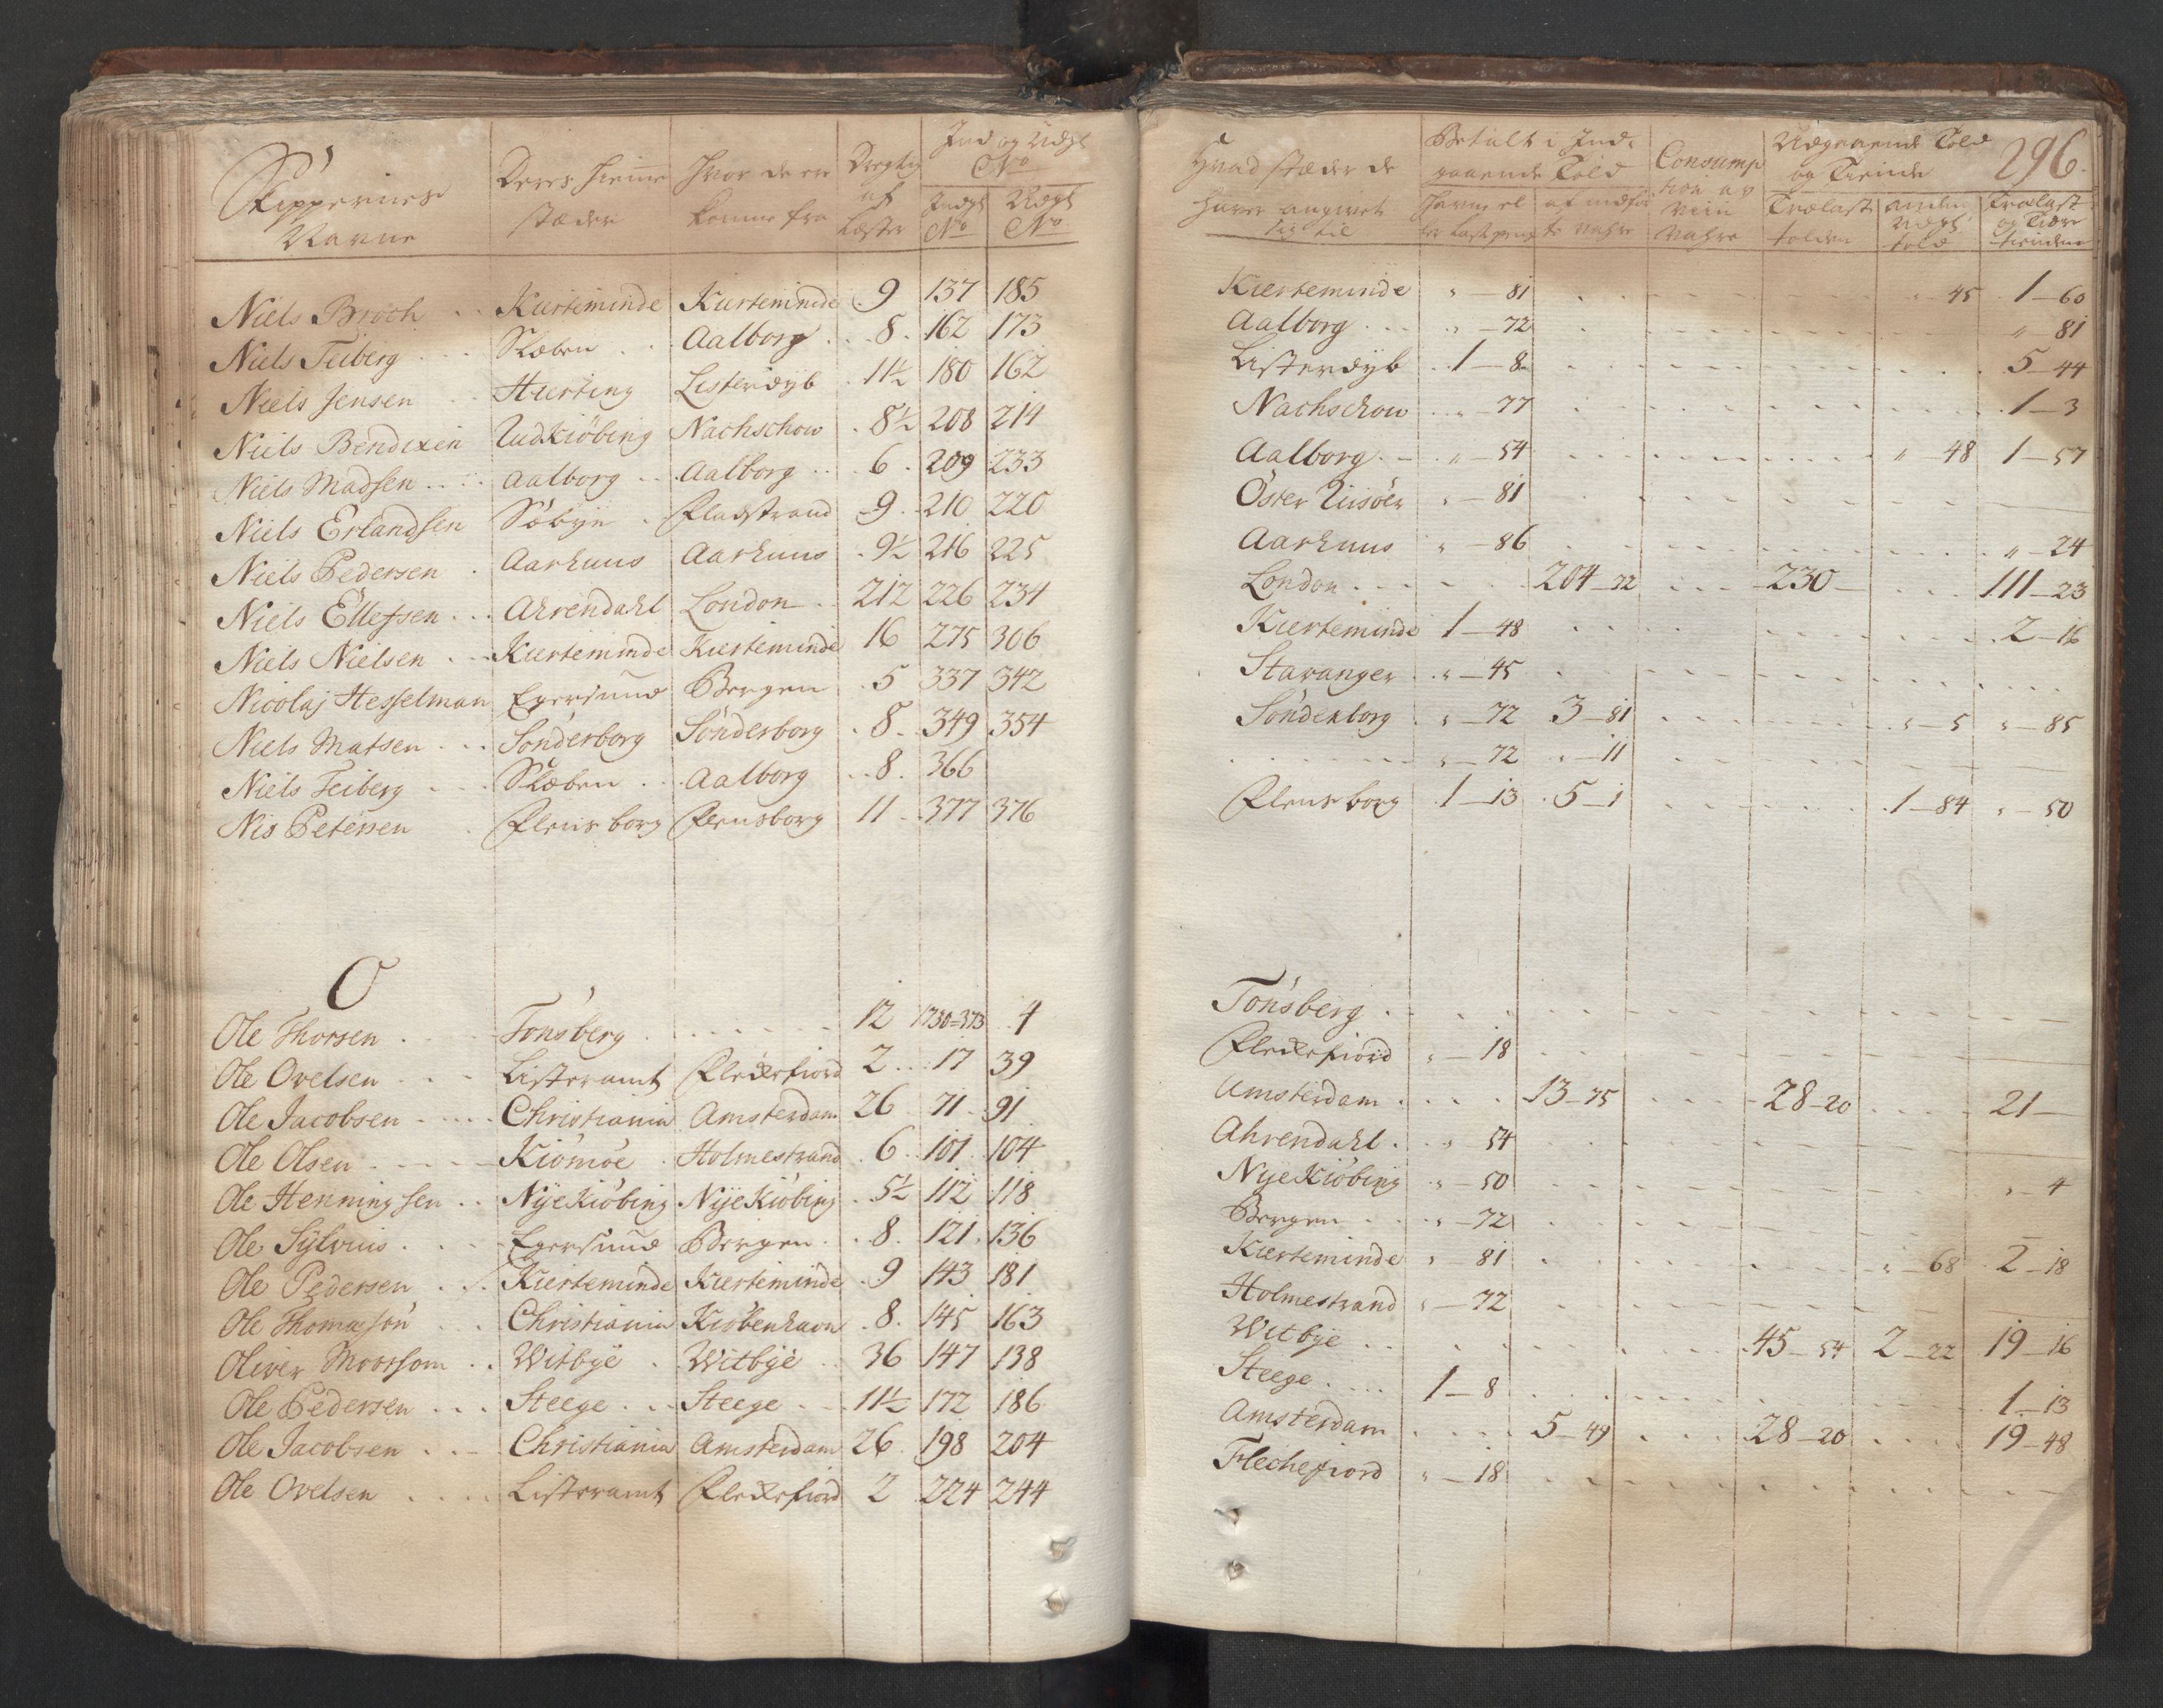 Skippernes Navne | Deres Hiemme stæder | Hvor de er komne fra | Dregtig af Læster | Ind og Udgl No | Indgl No | Udgl No
Niels Broch Kierteminde Kierteminde 9 137 185
Niels Feiberg Skeben Aalborg 8 162 173
Niels Jensen Hierting Listerdyb 11½ 180 162
Niels Bendixen Rudkiöbing Nachschow 8½ 208 214
Niels Madsen Aalborg Aalborg 6 209 233
Niels Erlandsen Söbÿe Fladstrand 9 210 220
Niels Pedersen Aarhuus Aarhuus 9½ 216 225
Niels Ellefsen Ahrendahl London 212 226 234
Niels Nielsen Kierteminde Kierteminde 16 275 306
Nicolaj Hesselman Egersund Bergen 5 337 342
Niels Matsen Sönderborg Sönderborg 8 349 354
Niels Feiberg Skeben Aalborg 8 366
Nis Petersen Flensborg Flensborg 11 377 376
O
Ole Thorsen Tönsberg 12 1730=373 4
Ole Ovelsen Listeramt Fleckefiord 2 17 39
Ole Jacobsen Christiania Amsterdam 26 71 91
Ole Olsen Kiömöe Holmestrand 6 101 104
Ole Henningsen Nÿekiöbing Nÿekiöbing 5½ 112 118
Ole Sÿlvius Egersund Bergen 8 121 136
Ole Pedersen Kierteminde Kierteminde 9 143 181
Ole Thomæsön Christiania Kiöbenhavn 8 145 163
Oliver Moorsom Witbÿe Witbÿe 36 147 138
Ole Pedersen Steege Steege 11½ 172 186
Ole Jacobsen Christiania Amsterdam 26 198 204
Ole Ovelsen Listeramt Fleckefiord 2 224 244
296.
Hvad stæder de haver angivet sig til | Betalt i Indgaaende Told | af indför te Vahre | Consumption av Vahre | Udgaaende Told og Tiende | Trælast tolden | anden Udgl told | Trælast og Tiære tienden
Kierteminde " — 81 " — 45 1 — 60
Aalborg " — 72 " — 81
Listerdyb 1 — 8 5 — 44
Nachschow " — 77 1 — 3
Aalborg " — 54 " — 48 1 — 57
Öster Riisöer " — 81
Aarhuus " — 86 " — 24
London 204 — 72 230 — 111 — 23
Kierteminde 1 — 48 2 — 16
Stavanger " — 45
Sönderborg " — 72 3 — 81 " — 5 " — 85
" — 72 " — 11
Flensborg 1 — 13 5 — 1 1 — 84 " — 50
Tönsberg
Fleckefiord " — 18
Amsterdam 13 — 75 28 — 20 21 —
Ahrendahl " 54
Nÿekiöbing " — 50 " — 4
Bergen " — 72
Kierteminde " — 81 " — 68 2 — 18
Holmestrand " — 72
Witbÿe 45 — 54 2 — 22 19 — 16
Steege 1 — 8 1 — 13
Amsterdam 5 — 49 28 — 20 19 — 48
Flechefiord " — 18